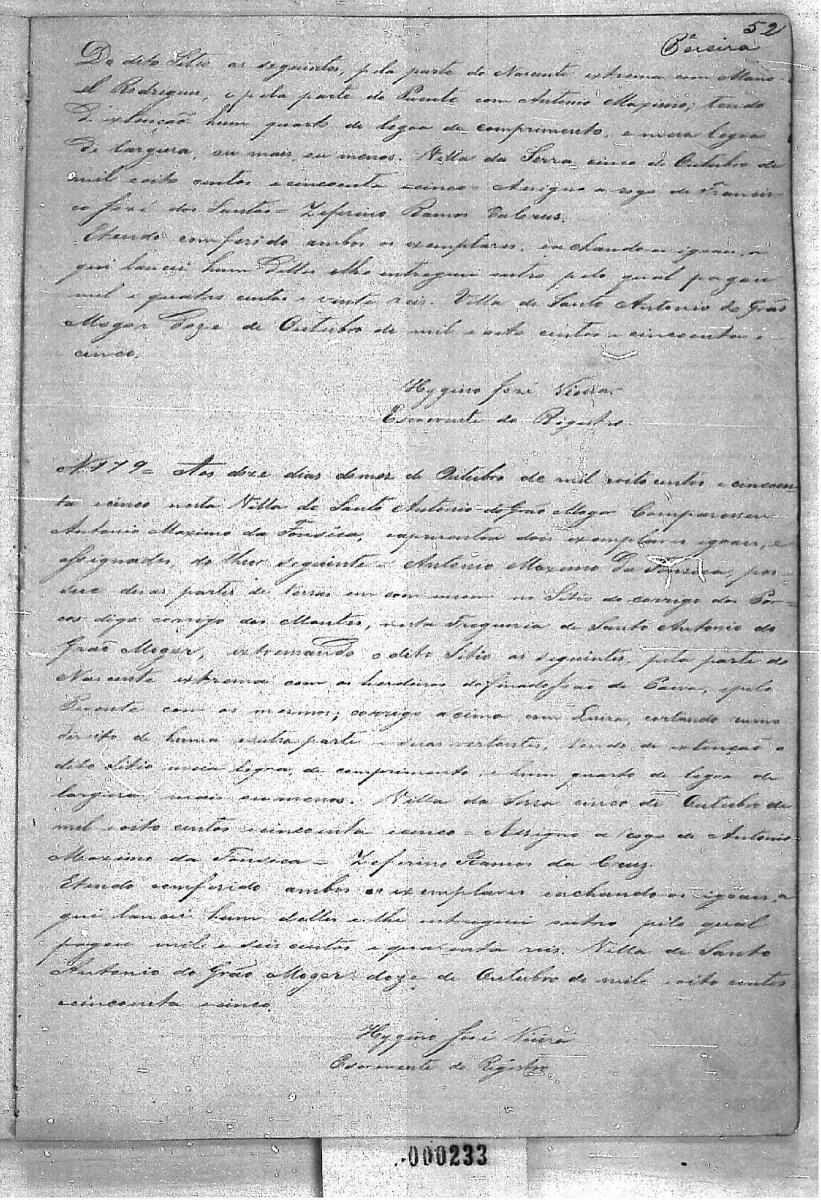 52
Pereira
Do dito Sitio as seguintes, pela parte do Nascente extrema com Mano-
el Rodrigues, e pela parte do Puente com Antonio Maximo; tendo
de extenção hum quarto de legoa de comprimento, e meia legoa
de largura, ou mais, ou menos. Villa da Serra, cinco de Outubro de
mil oito centos e cincoenta e cinco = Assigno a rogo de Francis-
co José dos Santos = Zeferino Ramos
Etendo comferido ambos os exemplares, eachando os igoaes, a
qui lancei hum delles elhe entreguei outro pelo qual pagou
mil e quatro centos e vinte reis. Villa de Santo Antonio do Grão
Mogor Doze de Outubro de mil e oito centos e cincoenta e
cinco.
Hygino José Vieira
Escrevente do Registro.
N. 179 = Aos doze dias domez de Outubro de mil oito centos e cincoen-
ta e cinco nesta Villa de Santo Antonio do Grão Mogor Compareceu
Antonio Maximo da Fonseca, eapresentou dois exemplares igoaes, e
assignados, do theor seguinte = Antonio Maximo Da Fonseca, pos-
sue duas partes de terras em com mum no Sitio do corrigo dos Por-
cos digo corrigo dos Montes, nesta Freguezia de Santo Antonio do
Grão Mogor, extremando o dito Sitio as seguintes, pela parte do
Nascente extrema com os herdeiros dofinado João de Paiva, epelo
Poente com os mesmos; corrigo acima com Luiza, cortando rumo
direito de huma eoutra parte vertentes, tendo de extenção o
dito Sitio meia legoa de comprimento e hum quarto de legoa de
largura mais oumenos. Villa da Serra cinco de Outubro de
mil eoito centos ecincoenta ecinco = Assigno a rogo de Antonio
Maximo da Fonseca = Zeferino Ramos da Cruz.
Etendo comferido ambos os exemplares eachando os igoaes, a
qui lancei hum delles e lhe entreguei outro pelo qual
pagou mil e seis centos e quarenta reis. Villa de Santo
Antonio do Grão Mogor doze de Outubro de mil e oito centos
ecincoenta ecinco.
Hygino José Vieira
Escrevente do Registro
000233